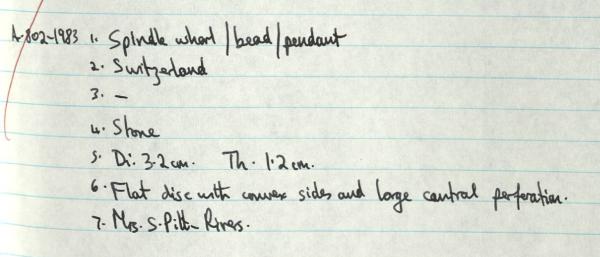 A.802-1983 1. Spindle whorl / bead / pendant
2. Switzerland
3. —
4. Stone
5. Di. 3.2 cm. Th. 1.2 cm.
6. Flat disc with convex sides and large central perforation.
7. Mrs. S. Pitt-Rivers.